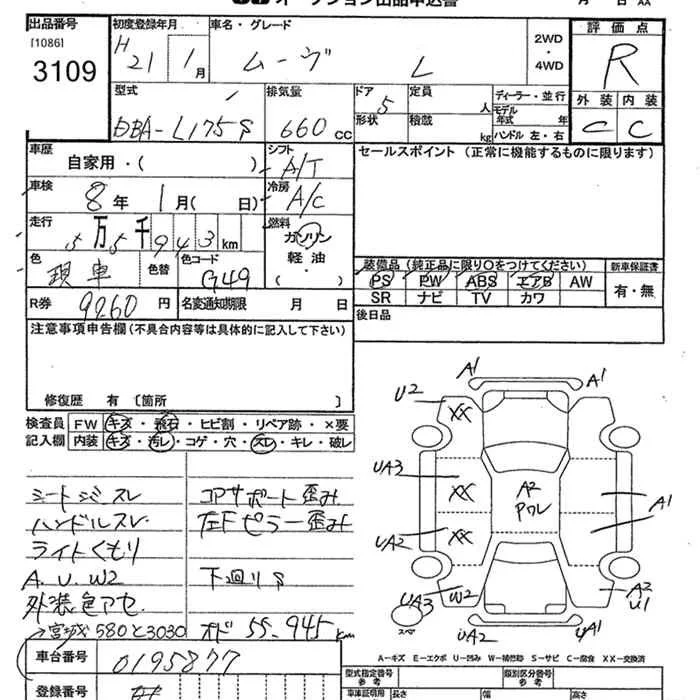 オークション出品申込書
出品番号
[1086]
3109
初度登録年月
H 21 1月
車名・グレード
ムーヴ L
2WD
・
4WD
評価点
R
外装 内装
C C
型式
DBA-L175S
排気量
660 cc
ドア
5
形状
定員
人
積載
kg
ディーラー・並行
モデル
年式 年
ハンドル 左・右
車歴
自家用・( )
シフト
A/T
セールスポイント (正常に機能するものに限ります)
車検
8年 1月( 日)
冷房
A/C
走行
5万5千943km
燃料
ガソリン
軽油・
( )
色
現車
色替
色コード
G49
装備品 (純正品に限り○をつけてください)
新車保証書
PS PW ABS エアB AW
有・無
SR ナビ TV カワ
R券 9260 円
名変通知期限 月 日
後日品
注意事項申告欄(不具合内容等は具体的に記入して下さい)
修復歴 有 〔箇所 〕
検査員
記入欄
FW キズ・飛石・ヒビ割・リペア跡・×要
内装 キズ・汚レ・コゲ・穴・スレ・キレ・破レ
シートシミスレ
コアサポート歪み
ハンドルスレ
左Fピラー歪み
ライトくもり
A.U.W2
下廻りS
外装色アセ
→宮城580と3030
オド 55,945km
車台番号
0195877
登録番号
A1
A1
U2
XX
UA3
XX
A2
Pワレ
A1
UA2
XX
UA3
W2
A2
U1
スペア
UA2
UA1
A-キズ E-エクボ U-凹み W-補修跡 S-サビ C-腐食 XX-交換済
型式指定番号
参考
類別区分番号
参考
車庫証明用
長さ
幅
高さ